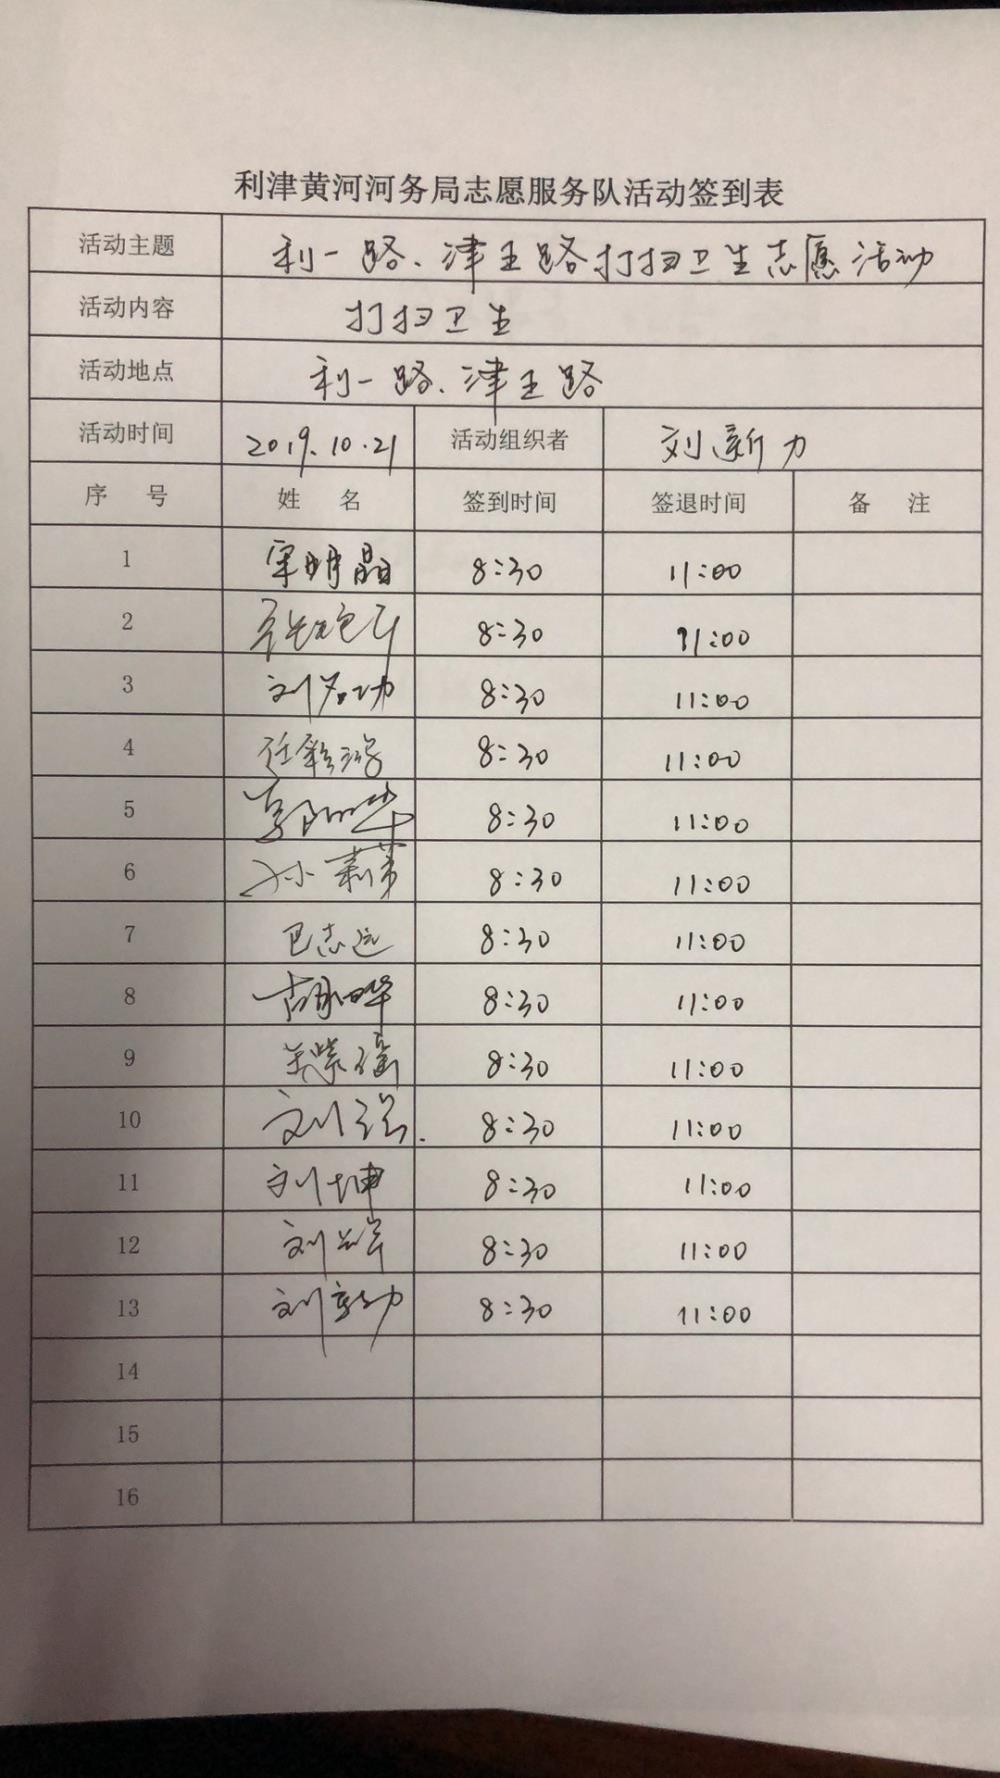 利津黄河河务局志愿服务队活动签到表
活动主题 利一路、津王路打扫卫生志愿活动
活动内容 打扫卫生
活动地点 利一路、津王路
活动时间 2019.10.21 活动组织者 刘新力
序 号 姓 名 签到时间 签退时间 备 注
1 宋明晶 8:30 11:00
2 8:30 11:00
3 刘 8:30 11:00
4 任 8:30 11:00
5 郭 8:30 11:00
6 孙 8:30 11:00
7 巴志远 8:30 11:00
8 胡晔 8:30 11:00
9 8:30 11:00
10 刘强 8:30 11:00
11 刘坤 8:30 11:00
12 刘 8:30 11:00
13 刘 8:30 11:00
14
15
16